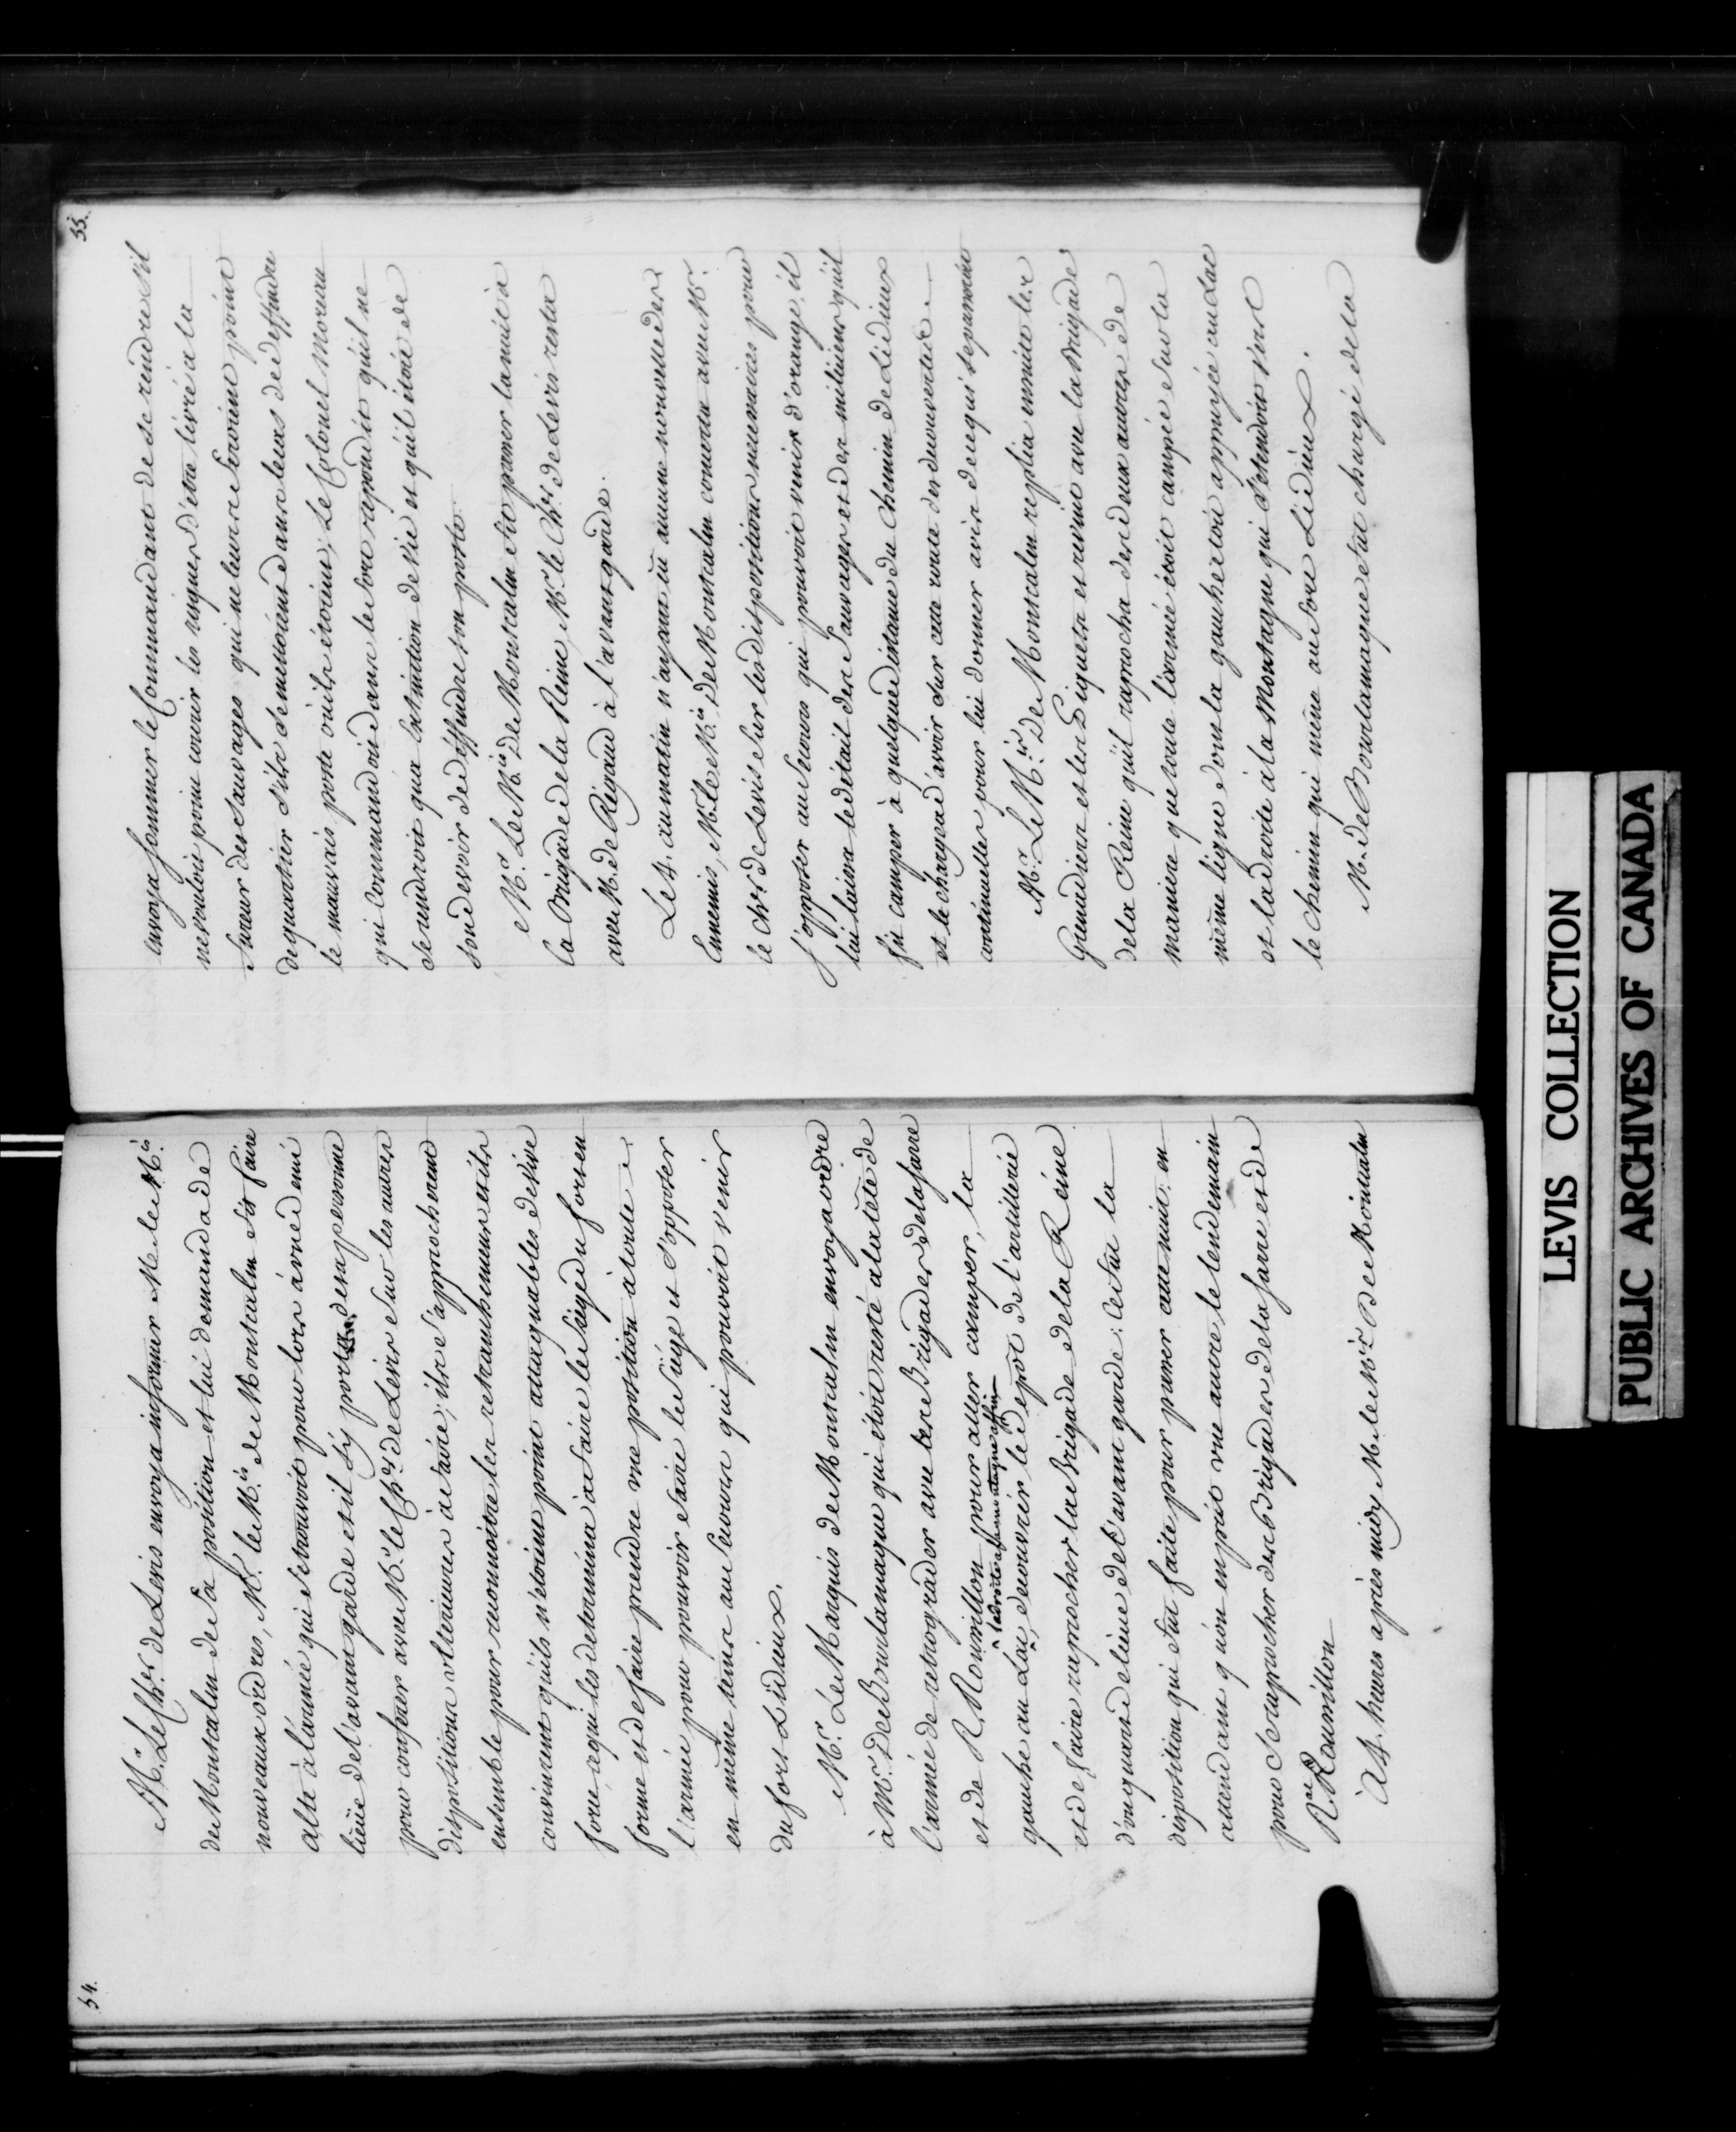 54.
Mr. Le Chr. de Levis envoya informer M. le Mis.
de Montcalm de Sa position et lui demanda de
nouveaux ordres, Mr. le Mis. de Montcalm fit faire
alte à l'armée qui Se trouvoit pour lors à une demi
lieüe de l'avant garde et il s'y porta de sa personne
pour conferer avec Mr. le Chr. de Levis Sur les autres
dispositions ulterieures à faire; ils s'approcherent
ensemble pour reconnoitre les retranchemens et ils
convinrent qu'ils n'étoient point attaquables de vive
force, ce qui les determina a faire le Siége du fort en
forme et de faire prendre une position à toute
l'armée pour pouvoir faire le Siége et s'opposer
en même tems aux Secours qui pouvoit venir
du fort Lidieux.
Mr. Le Marquis de Montcalm envoya ordre
à Mr. De Bourlamaque qui étoit resté a la tête de
l'armée de retrograder avec les Brigades de la Sarre
et de Rl. Rousillon pour aller camper, la
gauche au Lac, la droite a la montagne affin de couvrir le dépot de l'artillerie
et de faire raprocher la Brigade de la Reine
d'un quart de lieue de l'avant garde; Ce fut la
disposition qui fut faite pour passer cette nuit, en
attendant qu'on en prit une autre le lendemain
pour Se raprocher des Brigades de la Sarre et de
Ral. Rousillon
À 4. heures après midy M. le Mis. De Montcalm
55.
envoya sommer le Commandant de se rendre s'il
ne vouloit point courir les risques d'être livré a la
fureur des Sauvages qui ne leur feroient point
de quartier s'ils Se mettoient dans le cas de deffendre
le mauvais poste où ils étoient, Le Colonel Moreau
qui Commandoit dans le fort repondit qu'il ne
se rendroit qu'a l'extinction de vie et qu'il étoit de
Son devoir de deffendre son poste.
Mr. Le Mis. De Montcalm fit passer la nuit à
la Brigade de la Reine, Mr. le Chr. de Levis resta
avec M. de Rigaud à l'avant garde.
Le 4. au matin n'ayant eü aucune nouvelle des
Ennemis, Mr. le Mis. De Montcalm concerta avec Mr.
le Chr. de Levis Sur les dispositions necessaires pour
s'opposer au Secours qui pouvoit venir d'orange, il
lui laissa le détail des Sauvages et des miliciens qu'il
fit camper à quelque distance du Chemin de Lidieux
et le chargea d'avoir Sur cette route des decouvertes
continuelles pour lui donner avis de ce qui se passeroit
Mr. Le Mis. De Montcalm replia ensuite les
Grenadiers et les Piquets et revint avec la Brigade
de la Reine qu'il raprocha des deux autres de
maniere que toute l'armée étoit campée Sur la
même ligne dont la gauche étoit appuyée au Lac
et la droite à la Montagne qui S'étendoit vers
le chemin qui mêne au fort Lidieux.
M. de Bourlamaque fut chargé de la
LEVIS COLLECTION
PUBLIC ARCHIVES OF CANADA